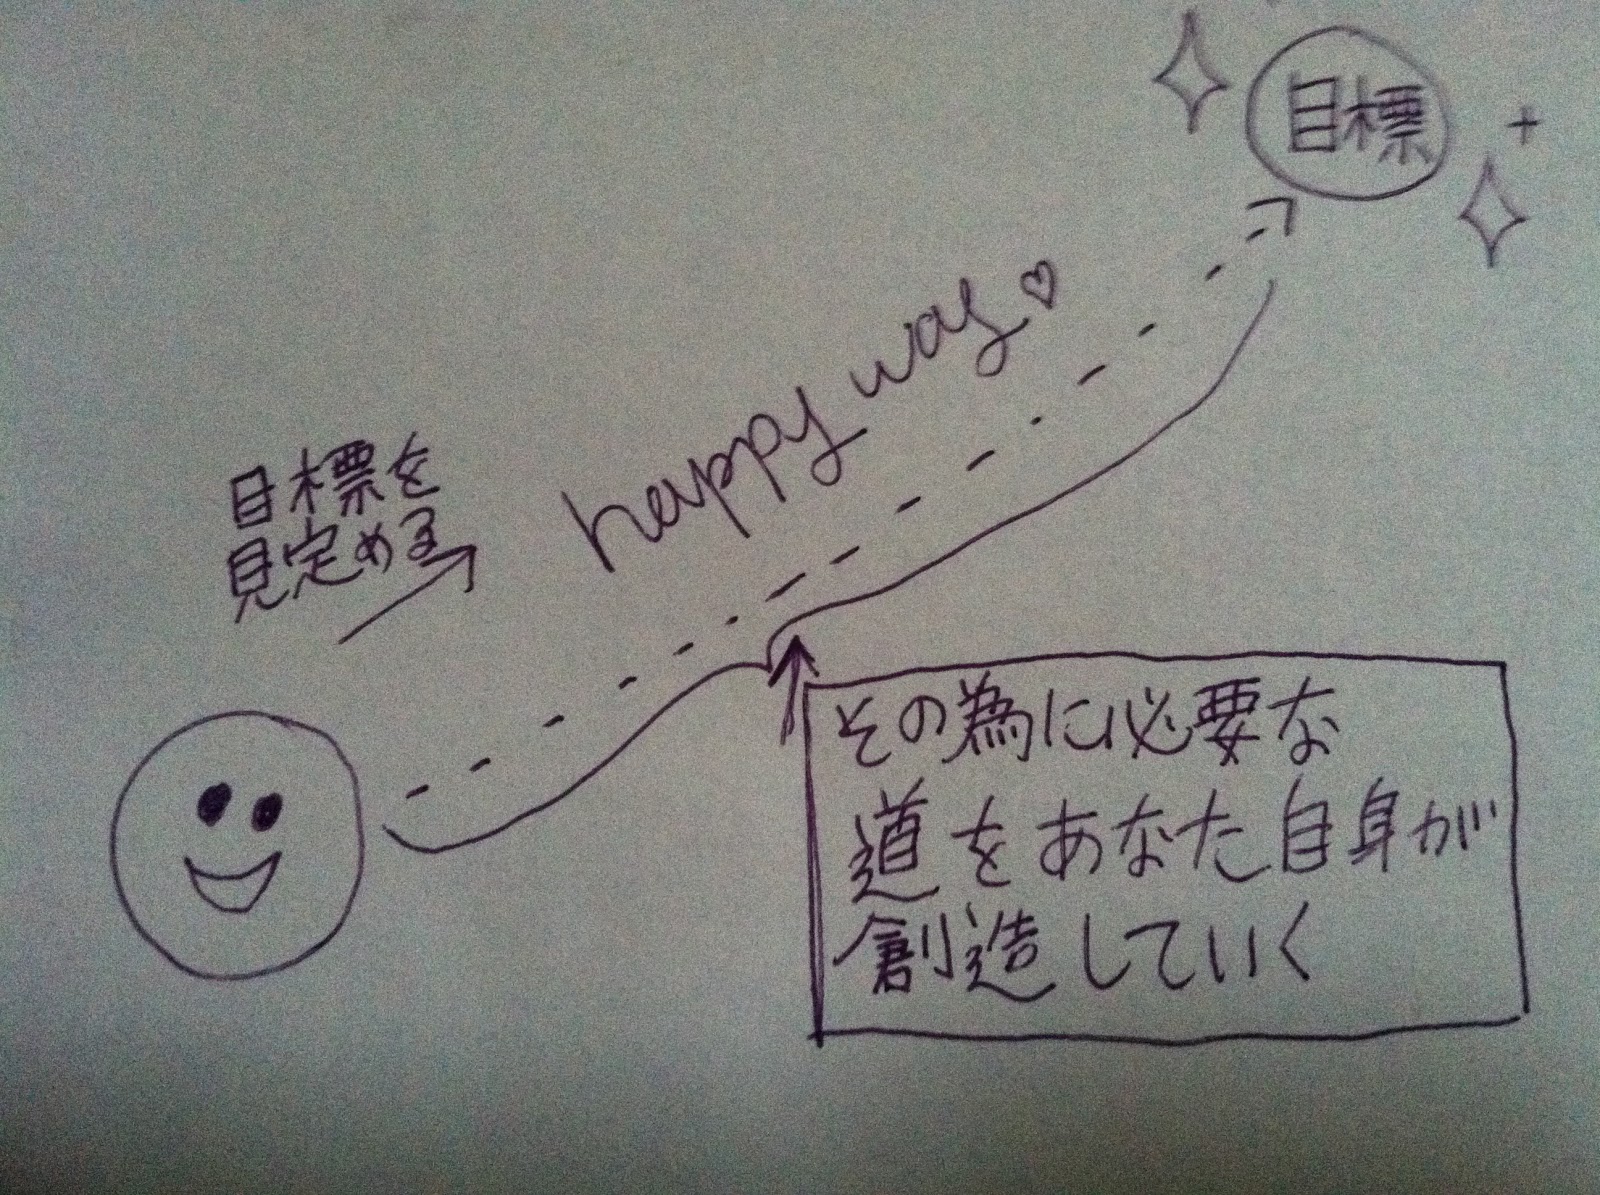 目標
happy way♡
目標を
見定める
その為に必要な
道をあなた自身が
創造していく